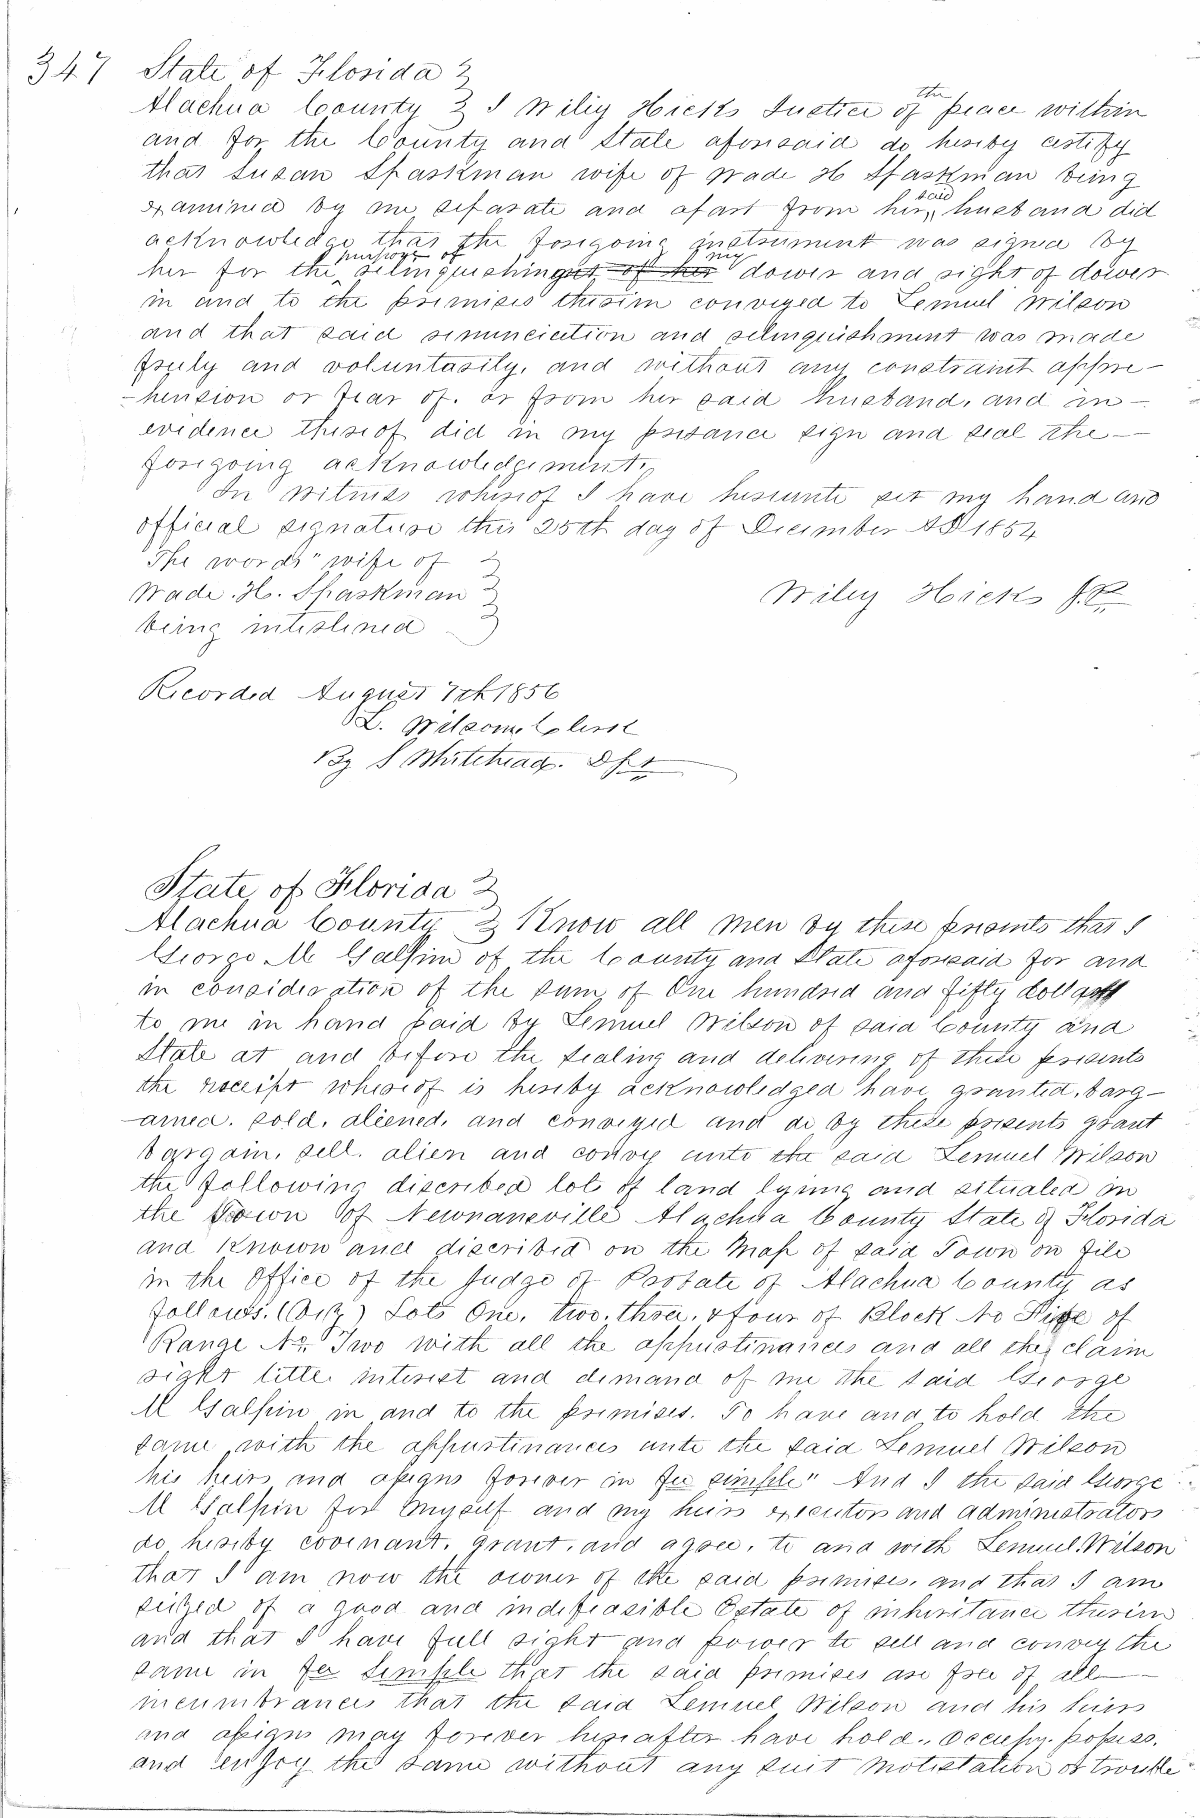 347 State of Florida }
Alachua County } I Wiley Hicks Justice of the peace within
and for the County and State aforesaid do hereby certify
that Susan Sparkman wife of Wade H Sparkman being
examined by me separate and apart from her said husband did
acknowledge that the foregoing instrument was signed by
her for the purpose of relinquishing my dower and right of dower
in and to the premises therein conveyed to Lemuel Wilson
and that said renunciation and relinquishment was made
freely and voluntarily, and without any constraint appre-
-hension or fear of. or from her said husband, and in -
evidence thereof did in my presance sign and seal the -
foregoing acknowledgement.
In Witness whereof I have hereunto set my hand and
official signature this 25th day of December AD 1854
The words "wife of }
Wade. H. Sparkman } Wiley Hicks J.P.
being interlined }
Recorded August 7th 1856
L. Wilson, Clerk
By S Whitehead. Dpt
State of Florida }
Alachua County } Know all men by these presents that I
George M Galphin of the County and State aforesaid for and
in consideration of the sum of One hundred and fifty dollars
to me in hand paid by Lemuel Wilson of said County and
State at and before the sealing and delivering of these presents
the receipt whereof is hereby acknowledged have granted, barg-
-ained. sold. aliened. and conveyed and do by these presents grant
bargain. sell. alien and convey unto the said Lemuel Wilson
the following discribed lot of land lying and situated in
the Town of Newnansville Alachua County State of Florida
and Known and discribed on the Map of said Town on file
in the Office of the Judge of Probate of Alachua County as
follows. (Viz) Lots One. two. three. & four of Block No Five of
Range No. Two with all the appurtinances and all the claim
right title. interest and demand of me the said George
M Galphin in and to the premises. To have and to hold the
same with the appurtinances unto the said Lemuel Wilson
his heirs and assigns forever in fee simple" And I the said George
M Galphin for myself and my heirs executors and administrators
do hereby covenant. grant. and agree. to and with Lemuel. Wilson
that I am now the owner of the said premises. and that I am
seized of a good and indefeasible Estate of inheritance therein
and that I have full right and power to sell and convey the
same in fee simple that the said premises are free of all -
incumbrances that the said Lemuel Wilson and his heirs
and assigns may forever hereafter have hold., occupy. possess.
and enjoy the same without any suit molestation or trouble